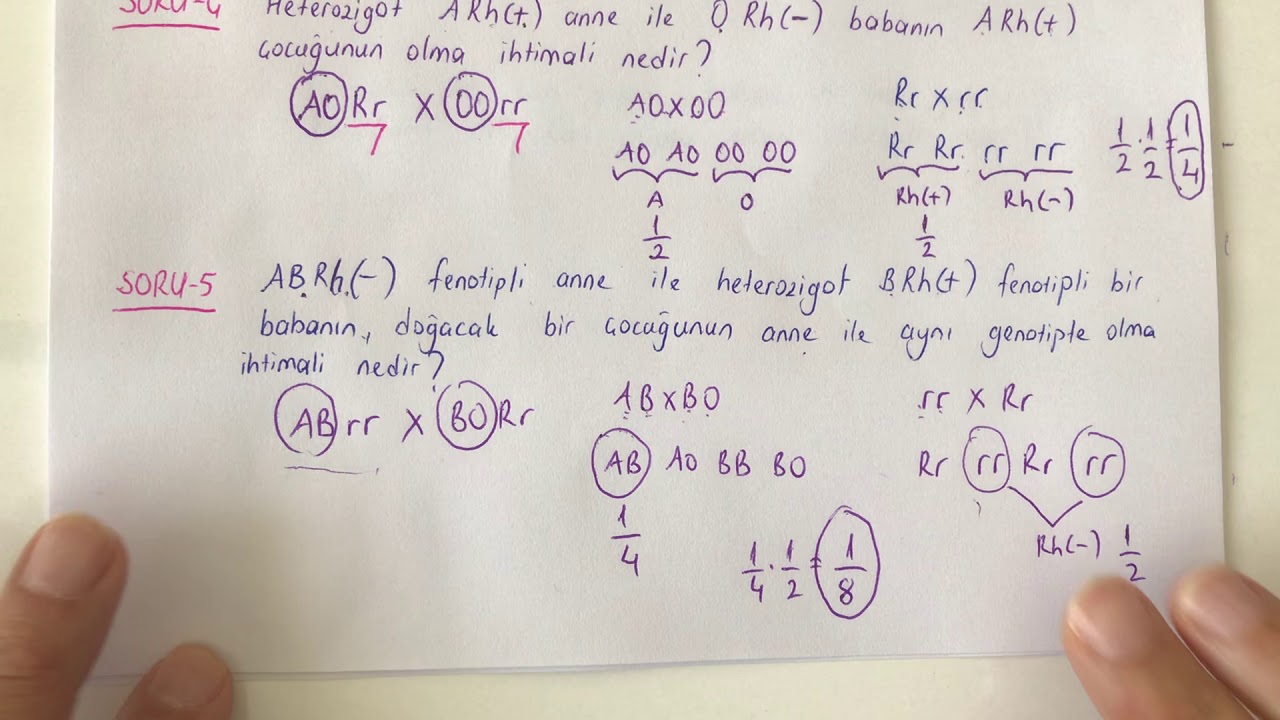 SORU-4 Heterozigot ARh(+) anne ile 0 Rh(-) babanın ARh(+)
çocuğunun olma ihtimali nedir?
AO Rr X OO rr
AO X OO
AO AO OO OO
A O
1/2
Rr X rr
Rr Rr rr rr
Rh(+) Rh(-)
1/2
1/2 . 1/2 = 1/4
SORU-5 ABRh(-) fenotipli anne ile heterozigot BRh(+) fenotipli bir
babanın, doğacak bir çocuğunun anne ile aynı genotipte olma
ihtimali nedir?
AB rr X BO Rr
AB X BO
AB AO BB BO
1/4
rr X Rr
Rr rr Rr rr
Rh(-) 1/2
1/4 . 1/2 = 1/8